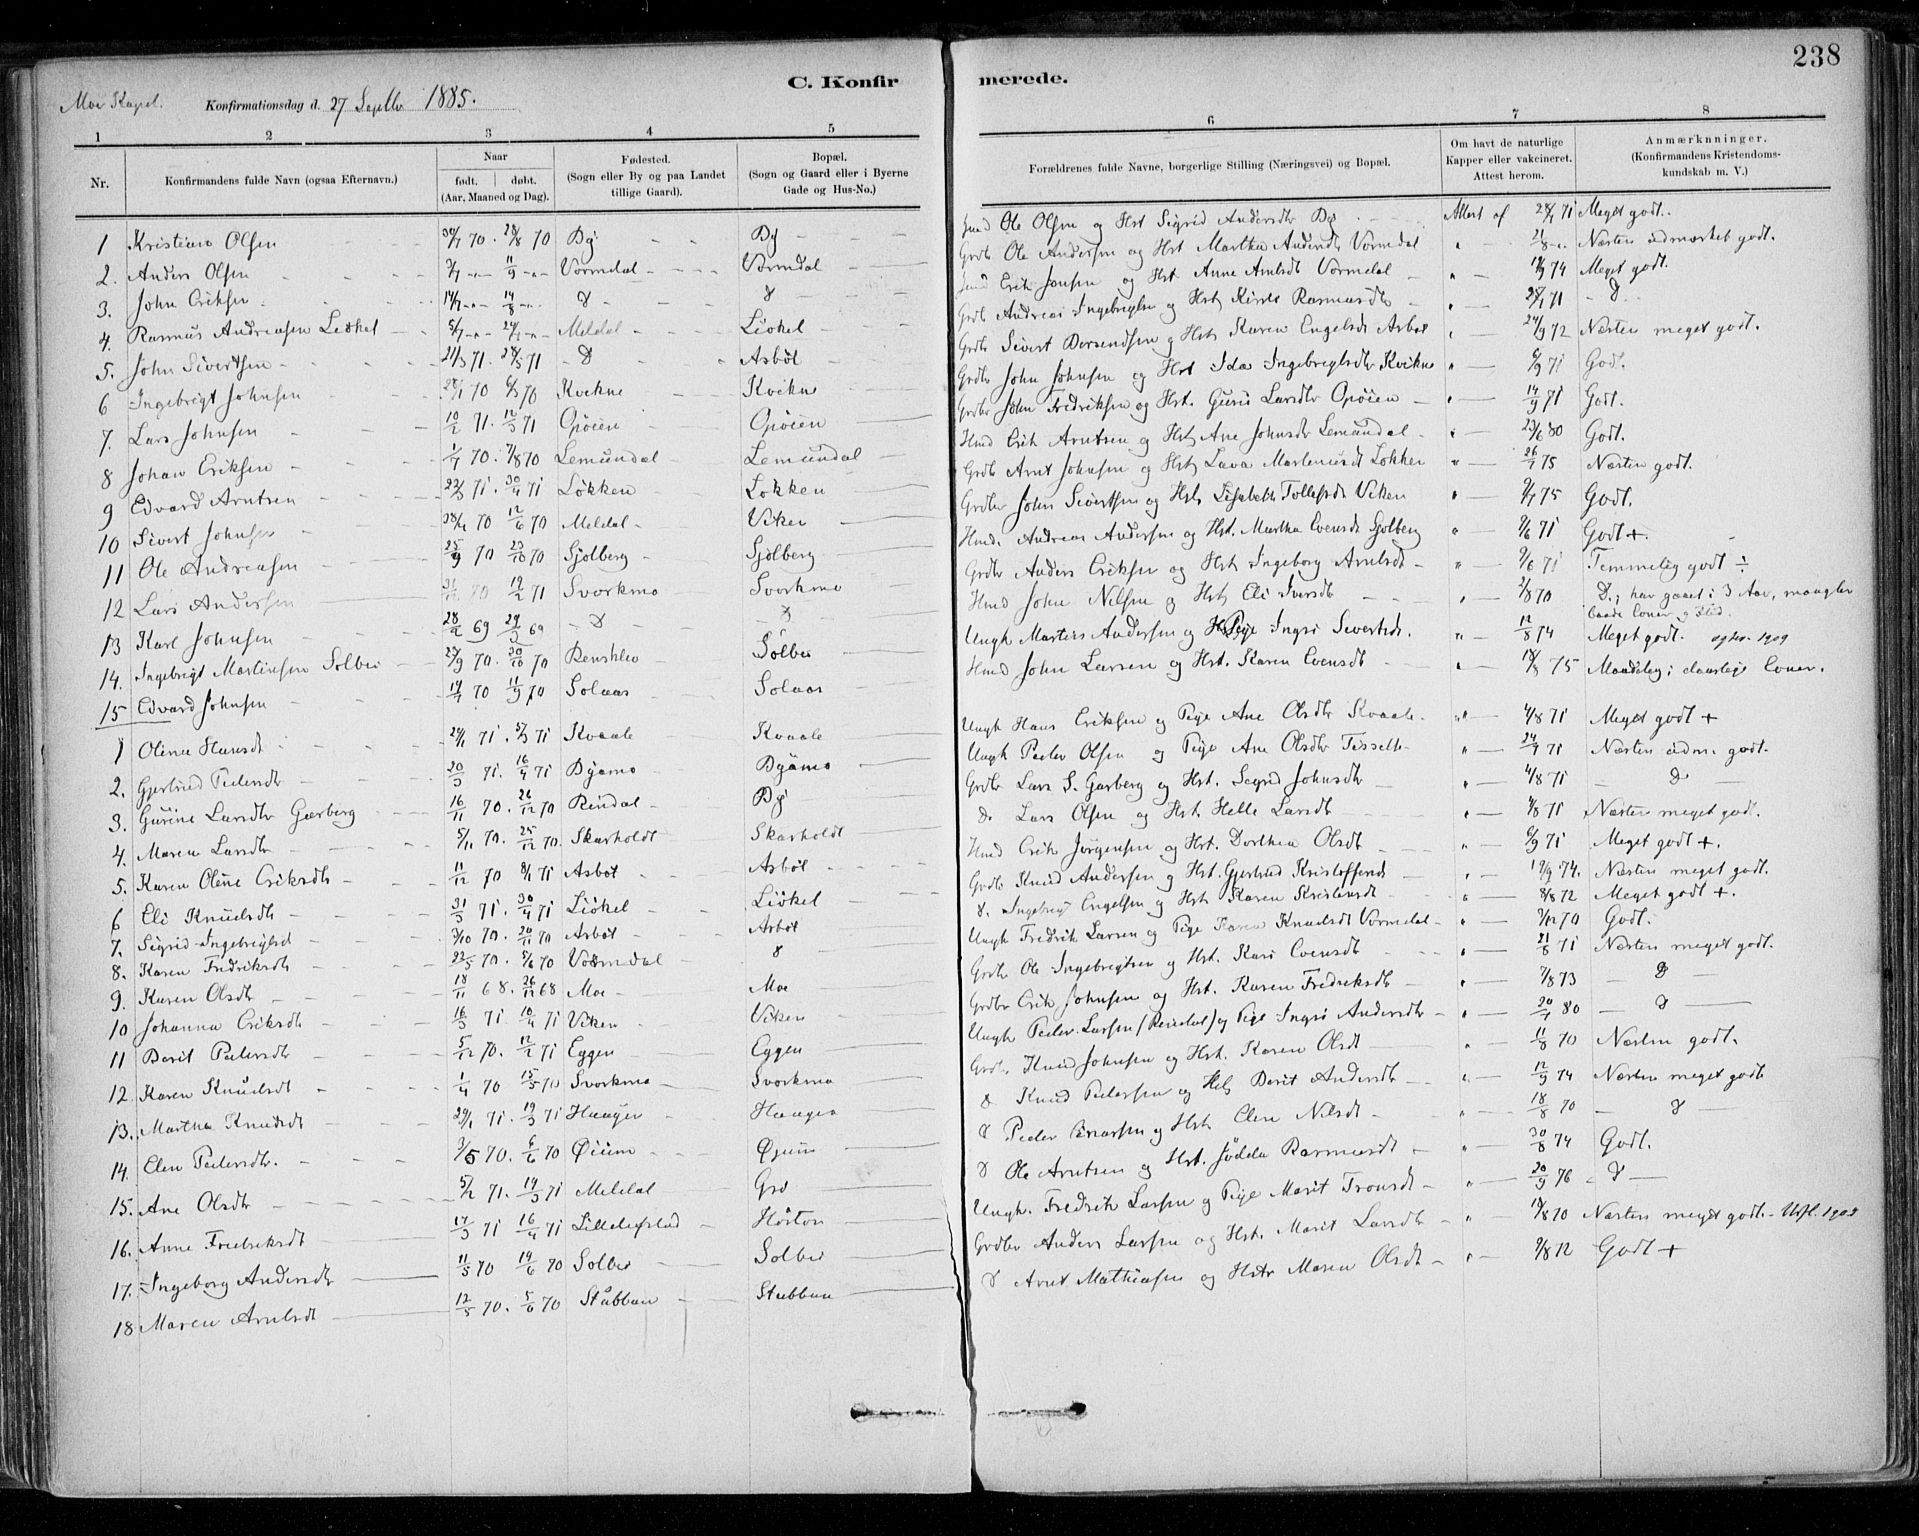 238
C. Konfirmerede.
Moe Kapel. Konfirmationsdag d. 27 Septbr 1885.
1 2 3 4 5 6 7 8
Nr. Konfirmandens fulde Navn (ogsaa Efternavn.) Naar født. døbt. (Aar, Maaned og Dag). Fødested. (Sogn eller By og paa Landet tillige Gaard). Bopæl. (Sogn og Gaard eller i Byerne Gade og Hus-No.) Forældrenes fulde Navne, borgerlige Stilling (Næringsvei) og Bopæl. Om havt de naturlige Kapper eller vakcineret. Attest herom. Anmærknninger. (Konfirmandens Kristendomskundskab m. V.)
1 Kristian Olsen 70. 28/8 70 By By Hmd Ole Olsen og Hst Sigrid Andersdtr By Attest af 71 Meget godt.
2. Anders Olsen 11/9 Vormdal Vormdal Grdbr Ole Andersen og Hst Martha Andersdt Vormdal Næsten udmærket godt.
3. John Eriksen 14/7 14/8 Hmd Erik Jonsen og Hst Anne Arntsdt Vormdal 74 Meget godt.
4. Rasmus Andreasen Liøkel 5/7 24/7 Meldal Liøkel Grdb Andreas Ingebrigtsen og Hst Kirsti Rasmusdtr 71
5. John Sivertsen 21/3 71. 71 Asbøl Grdbr Sivert Bersendsen og Hst Karen Engelsdt Asbøl 24/9 72 Næsten meget godt.
6 Ingebrigt Johnsen 70 70 Kvikne Kvikne Grdbr John Johnsen og Hst Ida Ingebrigtsdtr Kvikne 6/9 71 Godt.
7. Lars Johnsen 10/2 71. 12/3 71 Opøien Opøien Grdbr John Fredriksen og Hst. Guru Larsdtr Opøien 14/9 71 Godt.
8 Johan Eriksen 1/7 70. 7/8 70 Lemundal Lemundal Hmd Erik Arntsen og Hst Ane Johnsdtr Lemundal 23/6 80 Godt.
9 Edvard Arntsen 22/3 71. 30/4 71 Løkken Løkken Grdb Arnt Johnsen og Hst Lava Martenusdt Løkken 26/7 75 Næsten godt.
10 Sivert Johnsen 70 12/6 70 Meldal Viken Grdbr John Sivertsen og Hst Lisabeth Tollefsdt Viken 75 Godt.
11 Ole Andreasen 25/9 70 23/10 70 Sjølberg Sjølberg Hmd. Andreas Andersen og Hst. Martha Evensdt Sjølberg 9/6 71 Godt +
12 Lars Andersen 31/12 70 19/2 71 Svorkmo Svorkmo Grdbr Anders Eriksen og Hst Ingeborg Arntsdt 9/6 71 Temmelig godt ÷
13 Karl Johnsen 28/2 69 29/3 69 Hmd John Nilsen og Hst Eli Iversdt 2/8 70 D.; har gaaet i 3 Aar, mangler baade Evner og Flid.
14. Ingebrigt Martinsen Solbu 27/9 70. 30/10 70 Solbu Ungk Martin Andersen og Pige Ingri Sivertsdt. 12/8 74 Meget godt. 1909
15 Edvard Johnsen 14/7 70 11/9 70 Solaas Solaas Hmd John Larsen og Hst. Karen Evensdt 75 Maadelig; daarlige Evner.
1 Oline Hansdt 29/1 71. 5/3 71 Kvaale Kvaale Ungk Hans Eriksen og Pige Ane Olsdtr Kvaale 4/8 71 Meget godt +
2. Gjertrud Pedersdtr 20/3 71. 16/4 71 Byamo Byamo Ungk Peder Olsen og Pige Ane Olsdtr 24/7 71 Næsten udm. godt.
3. Gurine Larsdtr Garberg 16/11 70. 26/12 70 Rindal By Grdbr Lars S. Garberg og Hst. Segrid Johnsdtr 4/8 71
4. Maren Larsdtr 5/11 70. 25/12 70 Skarholdt Skarholdt Lars Olsen og Hst Helle Larsdt 71 Næsten meget god.
5. Karen Oline Eriksdtr 11/12 70 8/1 71 Asbøl Asbøl Hmd Erik Jørgensen og Hst. Dorthea Olsdt 6/9 71 Meget godt +.
6 Eli Knudsdt 31/3 71. 30/4 71 Liøkel Liøkel Grdb Knud Andersen og Hst. Gjertrud Kristoffersd 19/9 74. Næsten meget godt.
7. Sigrid Ingebrigtsd 70. 20/11 70 Asbøl Asbøl Ingebrigt Engelsen og Hst Karen Kristensdt 8/8 72 Meget godt +.
8. Karen Fredriksdt 22/5 70. 5/6 70 Vormdal Ungk Fredrik Larsen og Pige Karen Knudsdt Vormdal 70 Godt.
9. Karen Olsdt 18/11 68. 26/12 68 Moe Moe Grdbr Ole Ingebrigtsen og Hst. Kari Evensdt 71 Næsten meget godt.
10 Johanna Eriksdt 16/3 71. 10/4 71 Viken Viken Grdbr Erik Johnsen og Hst. Karen Fredriksdt 7/8 73
11 Berit Pedersdtr 5/12 70. 12/2 71 Eggen Eggen Ungk Peder Larsen (Rindal) og Pige Ingri Andersdtr 20/7 80
12. Karen Knudsdt 1/4 70 15/5 70 Svorkmo Svorkmo Grdb. Knud Johnsen og Hst. Karen Olsdt 11/8 70 Næsten godt.
13. Martha Knudsdt 29/1 71. 19/3 71 Haagen Haagen Knud Pedersen og Hst Berit Andersdt 12/9 74 Næsten meget godt
14. Elen Pedersdtr. 3/5 70. 6/6 70 Øium Øjum Peder Einarsen og Hst Elen Nilsdt 18/8 70
15. Ane Olsdtr 5/2 71. 19/3 71 Meldal Gro Ole Arntsen og Hst. Jødda Rasmusdt 30/8 74 Godt.
16. Anne Fredriksdt 17/3 71 16/4 71 Høston Ungk. Fredrik Larsen og Pige Marit Tronsdt 20/9 76
17. Ingeborg Andersdtr 11/5 70 19/6 70 Solbu Solbu Grdbr Anders Larsen og Hst. Marit Larsdtr 70 Næsten meget godt. Utfl. 1902
18 Maren Arntsdt 12/5 70. 5/6 70 Stubban Stubban Arnt Mathiasen og Hstr Maren Olsdt 9/8 72 Godt +